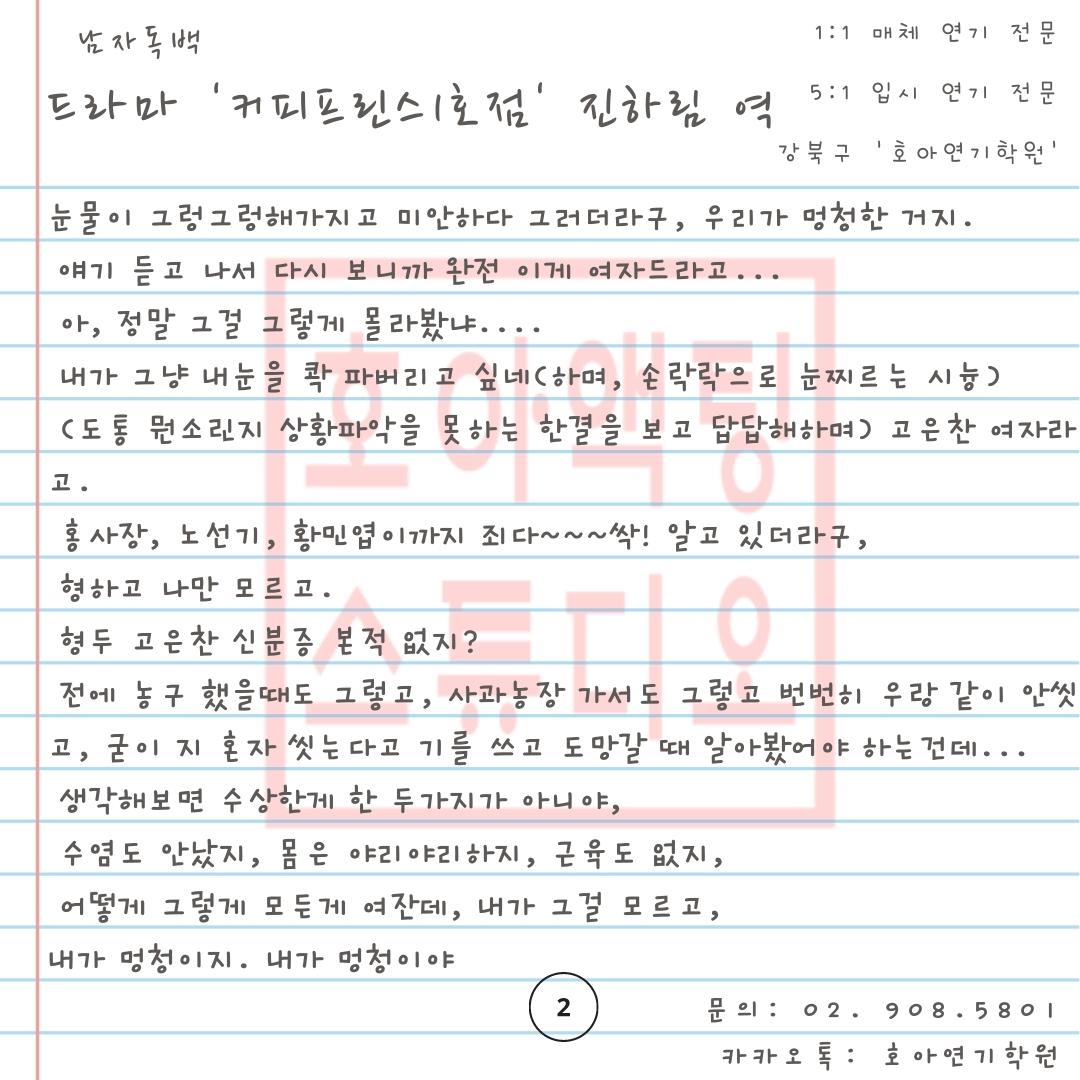 남자독백
1:1 매체 연기 전문
드라마 '커피프린스1호점' 진하림 역
5:1 입시 연기 전문
강북구 '호아연기학원'
눈물이 그렁그렁해가지고 미안하다 그러더라구, 우리가 멍청한 거지.
얘기 듣고 나서 다시 보니까 완전 이게 여자드라고...
아, 정말 그걸 그렇게 몰라봤냐....
내가 그냥 내눈을 콱 파버리고 싶네(하며, 손락락으로 눈찌르는 시늉)
(도통 뭔소린지 상황파악을 못하는 한결을 보고 답답해하며) 고은찬 여자라
고.
홍사장, 노선기, 황민엽이까지 죄다~~~싹! 알고 있더라구,
형하고 나만 모르고.
형두 고은찬 신분증 본적 없지?
전에 농구 했을때도 그렇고, 사과농장 가서도 그렇고 번번히 우랑 같이 안씻
고, 굳이 지 혼자 씻는다고 기를 쓰고 도망갈 때 알아봤어야 하는건데...
생각해보면 수상한게 한 두가지가 아니야,
수염도 안났지, 몸은 야리야리하지, 근육도 없지,
어떻게 그렇게 모든게 여잔데, 내가 그걸 모르고,
내가 멍청이지. 내가 멍청이야
호아액팅
스튜디오
2
문의: 02. 908.5801
카카오톡: 호아연기학원